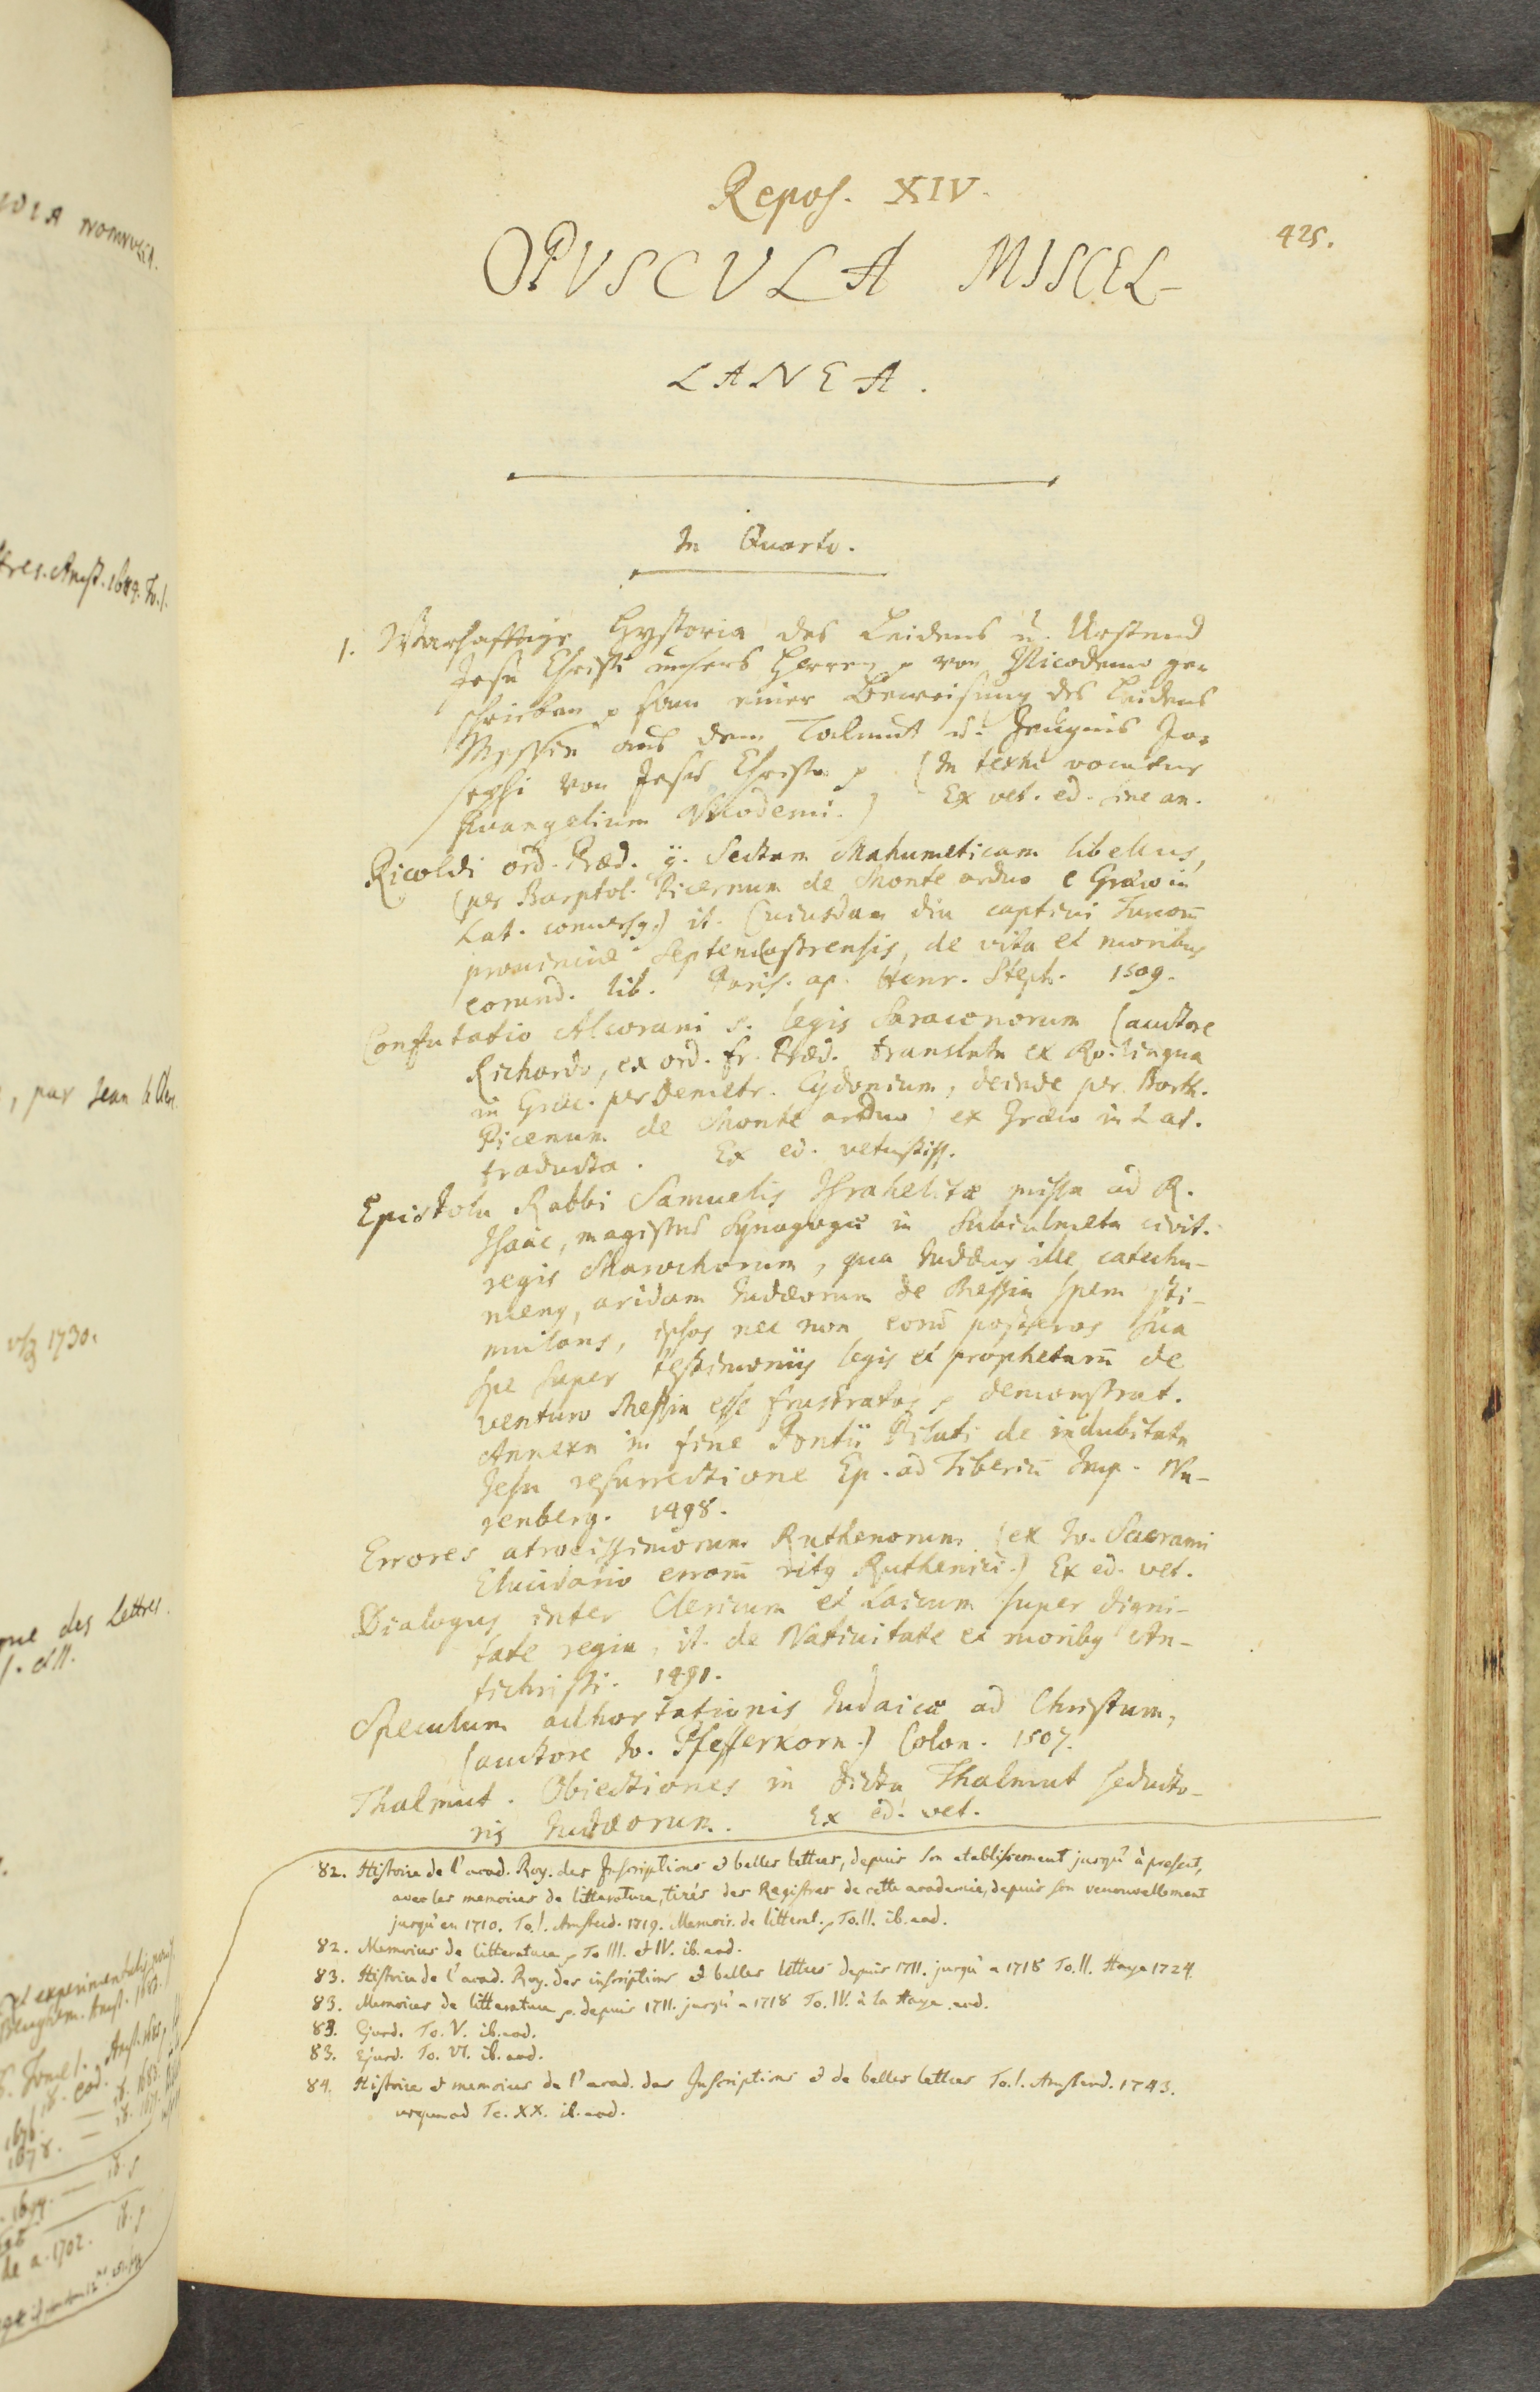 Repos. XIV.
425.
OPVSCVLA MISCEL-
LANEA.
In Quarto.
1. Warhafftige Hystoria des Leidens u. Urstend
Jesu Christi unsers Herren p von Nicodemo ge-
schrieben p sam einer Beweisung des Leidens
Messiae aus dem Talmut u. Zeugnis Jo-
sephi von Jesu Christo p (In textu vocatur
Evangelium Nicodemi.) Ex vet. ed. sine an.
Ricoldi ord. Præd. Sectam Mahumeticam libellus,
(per Barptol. Picernum de Monte arduo e Græco in
Lat. conversq.) it. Cuiusdam diu captivi Turcorū
provinciæ Septemcastrensis, de vita et moribus
eorund. lib. Paris. ap. Henr. Steph. 1509.
Confutatio Alcorani s. legis Saracenorum (auctore
Richardo, ex ord. fr. Præd. translata ex Ro. lingua
in Græc. per Demetr. Cydonium, deinde per Barth.
Picenum de Monte arduo, ex Græco in Lat.
traducta. Ex ed. vetustiss.
Epistola Rabbi Samuelis Israhelitæ missa ad R.
Isaac, magistrū Synagogæ in Subiulmeta civit.
regis Marochorum, qua Iudæus ille catechu-
menq, aridam Iudæorum de Messia spem sti-
mulans, ipsos nec non eorū posteros sua
spe super testimoniis legis et prophetarū de
venturo Messia esse frustratos p demonstrat.
Annexa in fine Pontii Pilati de indubitata
Jesu resurrectione Ep. ad Tiberiū Imp. Nu-
renberg. 1498.
Errores atrocissimorum Ruthenorum (ex Io. Sacrani
Elucidario errorū ritq Ruthenici.) Ex ed. vet.
Dialogus inter Clericum et Laicum super digni-
tate regia, it. de Nativitate et moribq An-
tichristi. 1491.
Speculum adhortationis Iudaicæ ad Christum,
(auctore Io. Pfefferkorn.) Colon. 1507.
Thalmut. Obiectiones in dicta Thalmut seducto-
ris Iudæorum. Ex ed. vet.
82. Histoire de l'acad. Roy. des Inscriptions et belles lettres, depuis son etablissement jusqu'à present,
avec les memoires de litterature, tirés des Registres de cette academie, depuis son renouvellement
jusqu'en 1710. To. I. Amsterd. 1719. Memoir. de litterat. p To. II. ib. eod.
82. Memoires de litterature p To III. et IV. ib. eod.
83. Histoire de l'acad. Roy. des inscriptions et belles lettres depuis 1711. jusqu'a 1718 To. II. Haye 1724.
83. Memoires de litterature p. depuis 1711. jusqu'a 1718 To. IV. à la Haye eod.
83. Ejusd. To. V. ib. eod.
83. Ejusd. To. VI. ib. eod.
84. Histoire et memoires de l'acad. des Inscriptions et de belles lettres To. I. Amsterd. 1743.
usque ad To. XX. ib. eod.